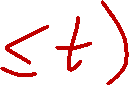 ≤ t)